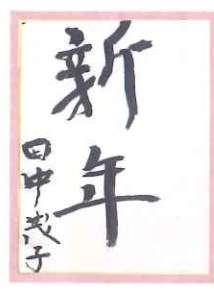 新年
田中茂子